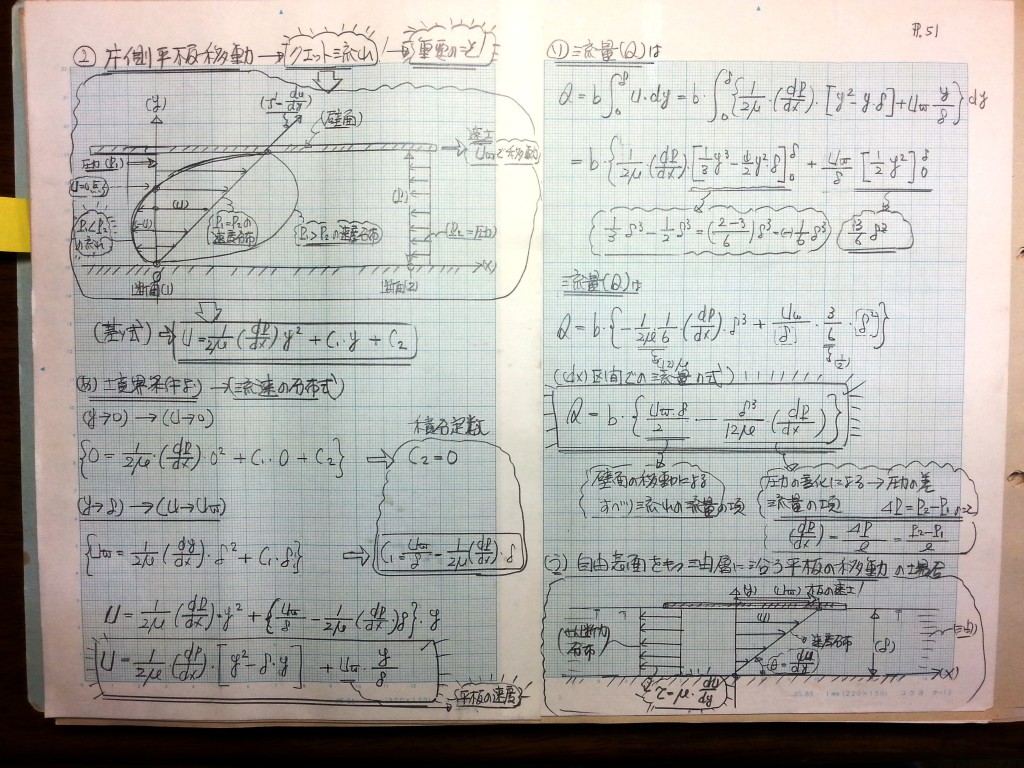 P.51
② 片側平板移動 → クエット流れ! 重要のこと
(y)
(θ = du/dy)
(壁面)
速さ
Uw で移動
圧力(P1)
U=0点
(-U)
(U)
P1<P2 の流れ
P1=P2の速度分布
P1>P2の速度分布
(P2=圧力)
(x)
断面(1)
断面(2)
(基本式) ⇒ U = 1/2μ (dP/dx) y² + C1・y + C2
(あ) 境界条件より → (流速の分布式)
(y→0) → (U→0)
{0 = 1/2μ・(dP/dx)・0² + C1・0 + C2} ⇒ C2 = 0
積分定数
(y→δ) → (U→Uw)
{Uw = 1/2μ・(dy/dx)・δ² + C1・δ} ⇒ C1 = Uw/δ - 1/2μ (dP/dx)・δ
U = 1/2μ・(dP/dx)・y² + {Uw/δ - 1/2μ・(dP/dx)δ}・y
U = 1/2μ・(dP/dx)・[y² - δ・y] + Uw・y/δ
平板の速度
(い) 流量(Q)は
Q = b∫₀^δ U・dy = b・∫₀^δ {1/2μ・(dP/dx)・[y² - y・δ] + Uw y/δ} dy
= b・{1/2μ・(dP/dx)・[1/3 y³ - 1/2 y²δ]₀^δ + Uw/δ [1/2 y²]₀^δ
1/3 δ³ - 1/2 δ³ = (2-3/6)δ³ = (-)1/6 δ³
3/6 δ²
流量(Q)は
Q = b・{- 1/2μ 1/6・(dP/dx)・δ³ + Uw/δ・3/6・[δ²]}
(1/2)
(dx)区間での流量の式
Q = b・{Uw・δ/2 - δ³/12μ・(dP/dx)}
壁面の移動による
すべり流れの流量の項
圧力の変化による → 圧力の差
流量の項 ΔP = P2 - P1
(dP/dx) = ΔP/l = P2-P1/l
(う) 自由表面をもつ油層に沿う平板の移動 の場合
(y) (Uw) 板の速さ!
(せん断力分布)
(U)
速度分布
θ = du/dy
(δ)
(油)
(x)
τ = μ・du/dy